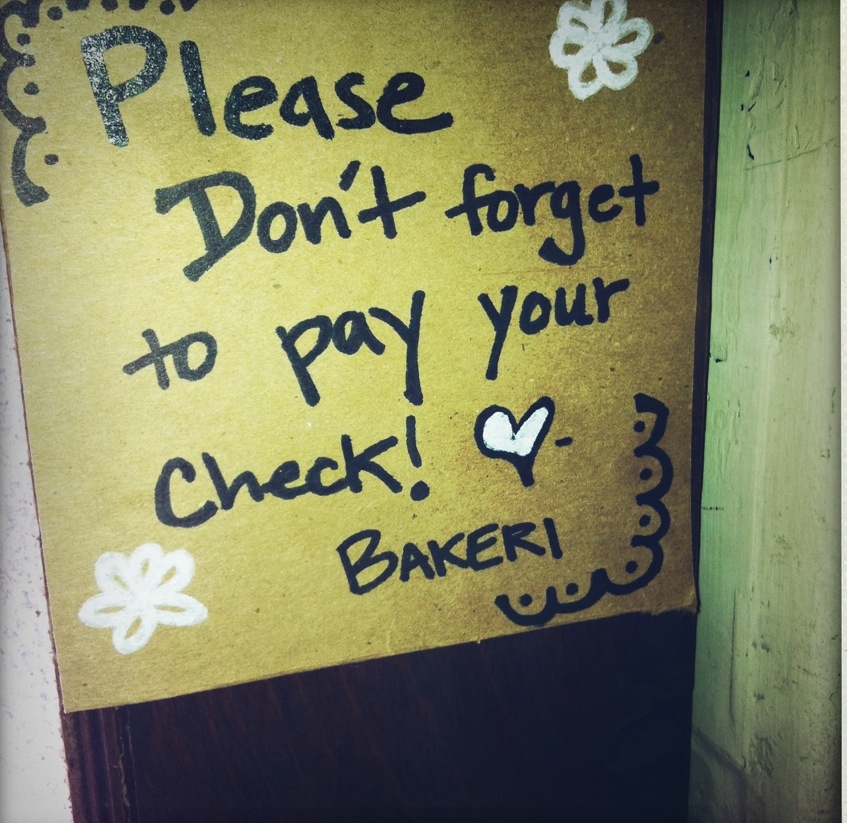 Please
Don't forget
to pay your
Check! ♡-
BAKERI